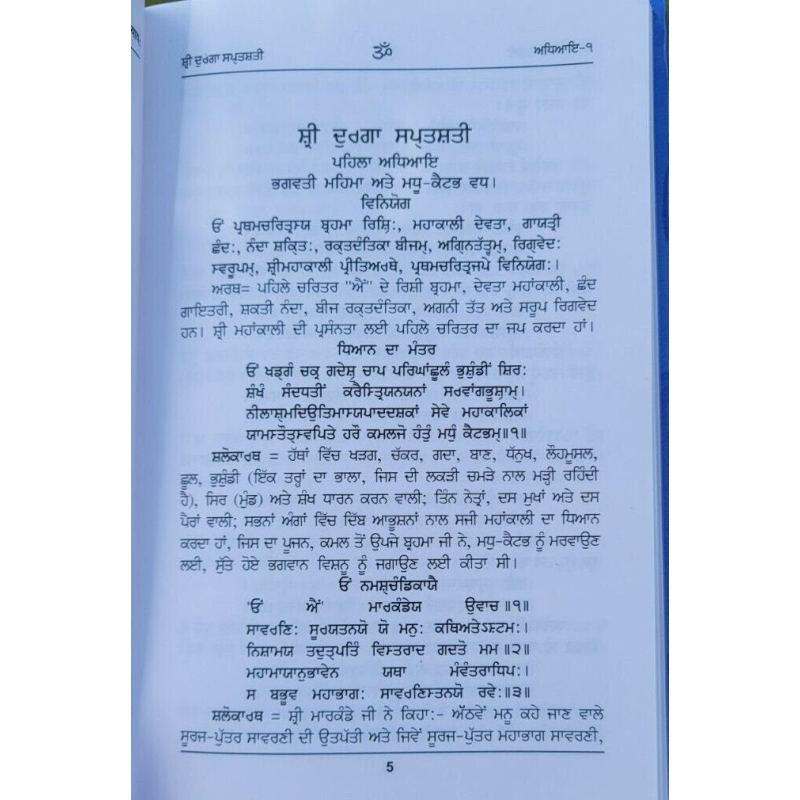 ਸ਼੍ਰੀ ਦੁਰਗਾ ਸਪ੍ਤਸ਼ਤੀ ॐ ਅਧਿਆਇ-੧
ਸ਼੍ਰੀ ਦੁਰਗਾ ਸਪ੍ਤਸ਼ਤੀ
ਪਹਿਲਾ ਅਧਿਆਇ
ਭਗਵਤੀ ਮਹਿਮਾ ਅਤੇ ਮਧੂ-ਕੈਟਭ ਵਧ।
ਵਿਨਿਯੋਗ
ਓਂ ਪ੍ਰਥਮਚਰਿਤ੍ਰਸਯ ਬ੍ਰਹਮਾ ਰਿਸ਼ਿ:, ਮਹਾਕਾਲੀ ਦੇਵਤਾ, ਗਾਯਤ੍ਰੀ
ਛੰਦ:, ਨੰਦਾ ਸ਼ਕ੍ਤਿ:, ਰਕ੍ਤਦੰਤਿਕਾ ਬੀਜਮ੍, ਅਗ੍ਨਿਤੱਤ੍ਵਮ੍, ਰਿਗ੍ਵੇਦ:
ਸ੍ਵਰੂਪਮ੍, ਸ਼੍ਰੀਮਹਾਕਾਲੀ ਪ੍ਰੀਤਿਅਰਥੇ, ਪ੍ਰਥਮਚਰਿਤ੍ਰਜਪੇ ਵਿਨਿਯੋਗ:।
ਅਰਥ= ਪਹਿਲੇ ਚਰਿਤਰ "ਐਂ" ਦੇ ਰਿਸ਼ੀ ਬ੍ਰਹਮਾ, ਦੇਵਤਾ ਮਹਾਂਕਾਲੀ, ਛੰਦ
ਗਾਇਤਰੀ, ਸ਼ਕਤੀ ਨੰਦਾ, ਬੀਜ ਰਕ੍ਤਦੰਤਿਕਾ, ਅਗਨੀ ਤੱਤ ਅਤੇ ਸਰੂਪ ਰਿਗਵੇਦ
ਹਨ। ਸ਼੍ਰੀ ਮਹਾਂਕਾਲੀ ਦੀ ਪ੍ਰਸੰਨਤਾ ਲਈ ਪਹਿਲੇ ਚਰਿਤਰ ਦਾ ਜਪ ਕਰਦਾ ਹਾਂ।
ਧਿਆਨ ਦਾ ਮੰਤਰ
ਓਂ ਖਡ੍ਗੰ ਚਕ੍ਰ ਗਦੇਸ਼ੁ ਚਾਪ ਪਰਿਘਾਂਛੂਲੰ ਭੁਸ਼ੁੰਡੀਂ ਸ਼ਿਰ:
ਸ਼ੰਖੰ ਸੰਦਧਤੀਂ ਕਰੈਸਤ੍ਰਿਯਨਯਨਾਂ ਸਰਵਾਂਗਭੂਸ਼ਾਮ੍।
ਨੀਲਾਸ਼੍ਮਦਿਉਤਿਮਾਸਯਪਾਦਦਸ਼ਕਾਂ ਸੇਵੇ ਮਹਾਕਾਲਿਕਾਂ
ਯਾਮਸਤੌਤ੍ਸ੍ਵਪਿਤੇ ਹਰੌ ਕਮਲਜੋ ਹੰਤੁੰ ਮਧੁੰ ਕੈਟਭਮ੍॥੧॥
ਸ਼ਲੋਕਾਰਥ = ਹੱਥਾਂ ਵਿੱਚ ਖੜਗ, ਚੱਕਰ, ਗਦਾ, ਬਾਣ, ਧੱਨੁਖ, ਲੌਹਮੂਸਲ,
ਛੂਲ, ਭੁਸ਼ੁੰਡੀ (ਇੱਕ ਤਰ੍ਹਾਂ ਦਾ ਭਾਲਾ, ਜਿਸ ਦੀ ਲਕੜੀ ਚਮੜੇ ਨਾਲ ਮੜ੍ਹੀ ਰਹਿੰਦੀ
ਹੈ), ਸਿਰ (ਮੁੰਡ) ਅਤੇ ਸ਼ੰਖ ਧਾਰਨ ਕਰਨ ਵਾਲੀ; ਤਿੰਨ ਨੇਤ੍ਰਾਂ, ਦਸ ਮੁਖਾਂ ਅਤੇ ਦਸ
ਪੈਰਾਂ ਵਾਲੀ; ਸਭਨਾਂ ਅੰਗਾਂ ਵਿੱਚ ਦਿੱਬ ਆਭੂਸ਼ਨਾਂ ਨਾਲ ਸਜੀ ਮਹਾਂਕਾਲੀ ਦਾ ਧਿਆਨ
ਕਰਦਾ ਹਾਂ, ਜਿਸ ਦਾ ਪੂਜਨ, ਕਮਲ ਤੋਂ ਉਪਜੇ ਬ੍ਰਹਮਾ ਜੀ ਨੇ, ਮਧੁ-ਕੈਟਭ ਨੂੰ ਮਰਵਾਉਣ
ਲਈ, ਸੁੱਤੇ ਹੋਏ ਭਗਵਾਨ ਵਿਸ਼ਨੂ ਨੂੰ ਜਗਾਉਣ ਲਈ ਕੀਤਾ ਸੀ।
ਓਂ ਨਮਸ਼੍ਚੰਡਿਕਾਯੈ
'ਓਂ ਐਂ' ਮਾਰਕੰਡੇਯ ਉਵਾਚ॥੧॥
ਸਾਵਰਣਿ: ਸੂਰਯਤਨਯੋ ਯੋ ਮਨੁ: ਕਥਿਅਤੇ਽ਸ਼ਟਮ:।
ਨਿਸ਼ਾਮਯ ਤਦੁਤ੍ਪਤਿੰ ਵਿਸਤਰਾਦ ਗਦਤੋ ਮਮ॥੨॥
ਮਹਾਮਾਯਾਨੁਭਾਵੇਨ ਯਥਾ ਮੰਵੰਤਰਾਧਿਪ:।
ਸ ਬਭੂਵ ਮਹਾਭਾਗ: ਸਾਵਰਣਿਸਤਨਯੋ ਰਵੇ:॥੩॥
ਸ਼ਲੋਕਾਰਥ = ਸ਼੍ਰੀ ਮਾਰਕੰਡੇ ਜੀ ਨੇ ਕਿਹਾ:- ਅੱਠਵੇਂ ਮਨੂ ਕਹੇ ਜਾਣ ਵਾਲੇ
ਸੂਰਜ-ਪੁੱਤਰ ਸਾਵਰਣੀ ਦੀ ਉਤਪੱਤੀ ਅਤੇ ਜਿਵੇਂ ਸੂਰਜ-ਪੁੱਤਰ ਮਹਾਭਾਗ ਸਾਵਰਣੀ,
5